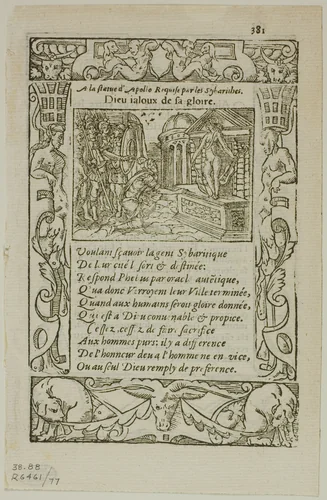 381
A la statue d'Apollo Requise par les Sybarithes.
Dieu ialoux de sa gloire.
Voulant sçauoir la gent Sybaritique
De leur cité l sort & destinée:
Respond Phebus par oracle autétique,
Qu'a donc verroyent leur Vide terminée,
Quand aux humains seroit gloire donnée,
Qui est a Dieu conuenable & propice.
Cessez, cessez de faire sacrifice
Aux hommes purs: il y a difference
De l'honneur deu a l'homme ne en vice,
Ou au seul Dieu remply de preference.
38-88
R6461/77